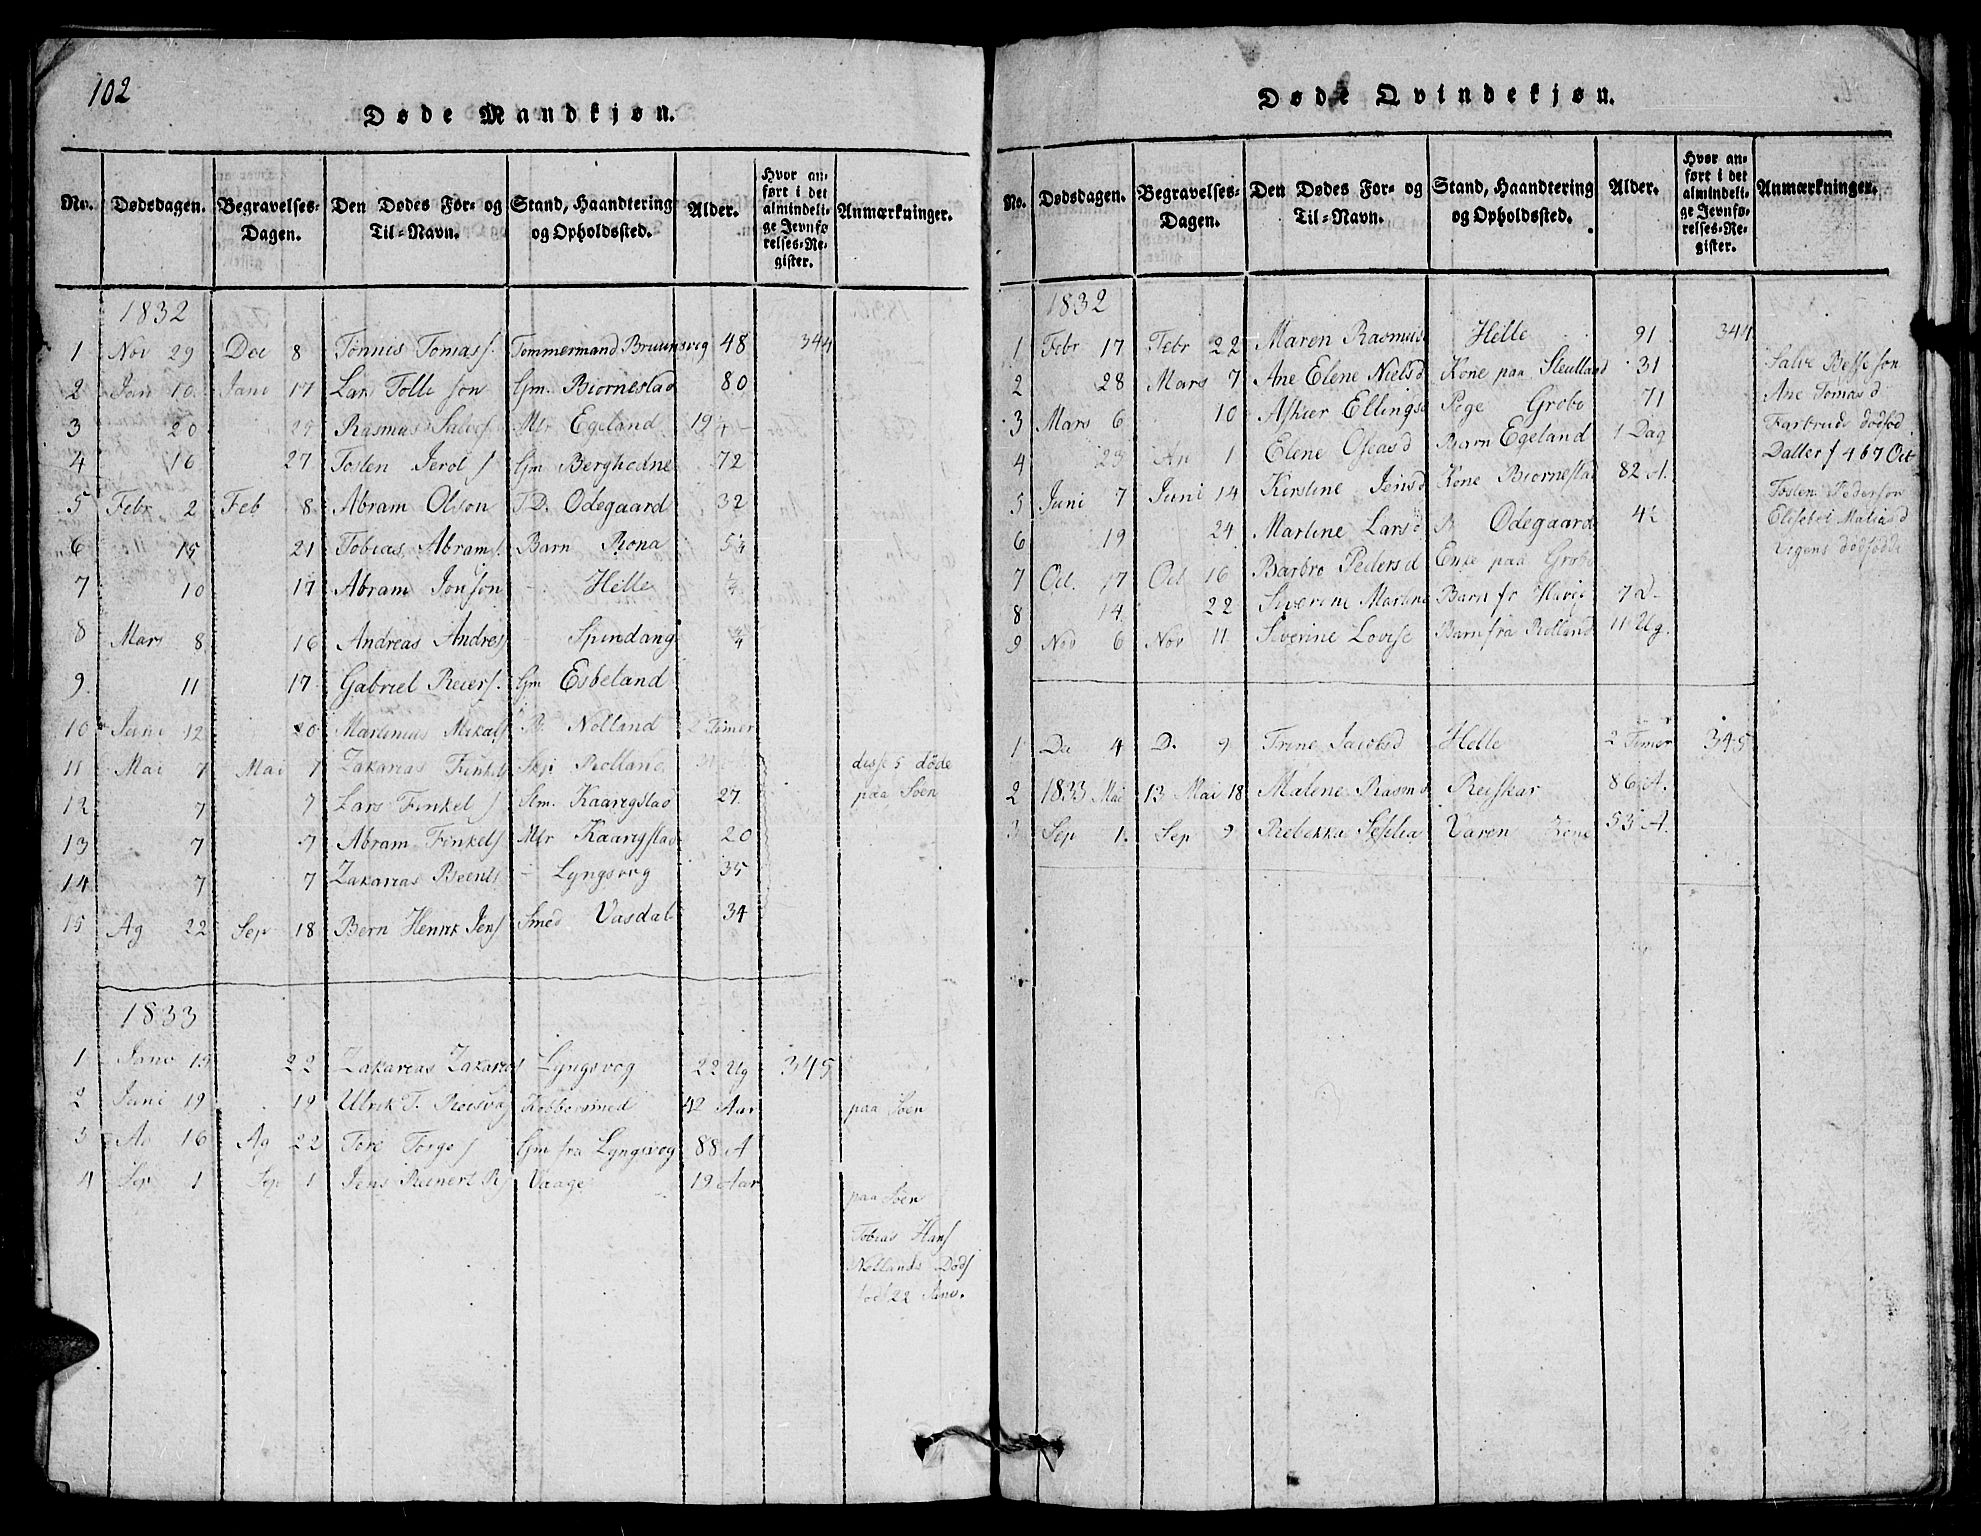 102
Døde Mandkjøn.
No. Dødsdagen. Begravelses-Dagen. Den Dødes For- og Til-Navn. Stand, Haandtering og Opholdssted. Alder. Hvor anført i det almindelige Jevnførelses-Register. Anmærkninger.
1832
1 Nov 29 Dec 8 Tønnis Tomas∫. Tømmermand Bruunsvig 48 344
2 Jan 10 Jani 17 Lars Tolle∫søn Gm. Biørnestad 80
3 20 Rasmus Salves∫ Egeland 19
4 16 27 Tosten Gm Berghedne 72
5 Febr 2 Feb 8 Abram Olson Odegaard 32
6 15 21 Tobias Abrams∫. Barn Rona
7 10 17 Abram Jonson - Helle
8 Mars 8 16 Andreas Andres∫ - Spindang
9 11 17 Gabriel Reiers∫. Gm Esbeland
10 12 20 Martinius Mikals∫ Nolland 2 Timer
11 Mai 7 Mai 7 Zakarias Finkels∫ Rolland disse 5 døde
12 7 7 Lars Finkels∫ Kaarigstad 27 paa Søen
13 7 7 Abram Finkels∫ Kaarigstad 20
14 7 7 Zakarias Beents∫ - Lyngsvog 35
15 Ag 22 Sep 18 Bern Henrik Jens∫ Smed Vasdal 34
1833
1 Janv 15 22 Zakarias Zakarias∫ Lyngsvog 22 Ug 345
2 Juni 19 19 Ulrik T. Kobbersmed 42 Aar paa Søen
3 16 Ag 22 Tore Torges∫ Gm fra Lyngsvog 88 A
4 Sep 1 Sep 1 Jens Reinert R∫ Vaage 19 Aar
paa Søen
Tobias Hans∫
Nollands Død∫
født 22 Janv.
Døde Qvindekjøn.
No. Dødsdagen. Begravelses-Dagen. Den Dødes For- og Til-Navn. Stand, Haandtering og Opholdssted. Alder. Hvor anført i det almindelige Jevnførelses-Register. Anmærkninger.
1832
1 Febr 17 Febr 22 Maren Rasmusd Helle 91 344
2 28 Mars 7 Ane Elene Nielsd Kone paa 31
3 Mars 6 10 Ellingsd Pige Grobo 71
4 23 1 Elene Oseasd Barn Egeland 1 Dag
5 Juni 7 Juni 14 Kirstine Jensd Kone Biørnestad 82 A.
6 19 24 Martine Larsd Odegaard
7 Oct. 17 Oct 16 Barbro Pedersd Enke paa Grobo
8 14 22 Siverine Martine Barn fr 7 D.
9 Nov 6 Nov 11 Siverine Lovise Barn fra Rolland 11 Ug.
Ane Tomasd
Datter
Tosten Pederson
1 4 D. 9 Trine Jacobsd Helle 2 Timer 345
2 1833 Mai 13 Mai 18 Malene Rasmd Reiskar 86 A.
3 Sep 1. Sep 9 Rebekka Varen Kone 53 A.